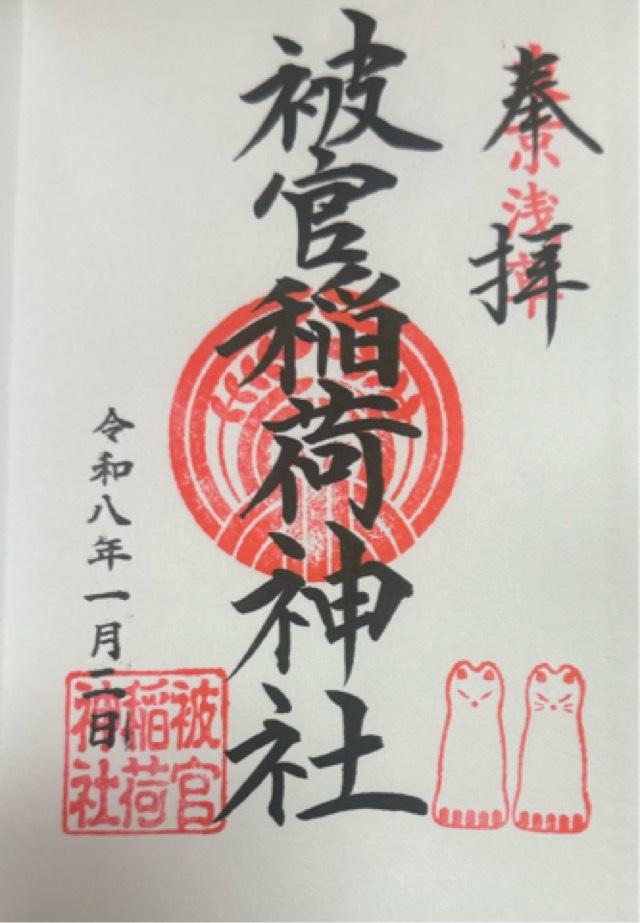 奉拝
東京浅草
被官稲荷神社
令和八年一月二日
被官
稲荷
神社